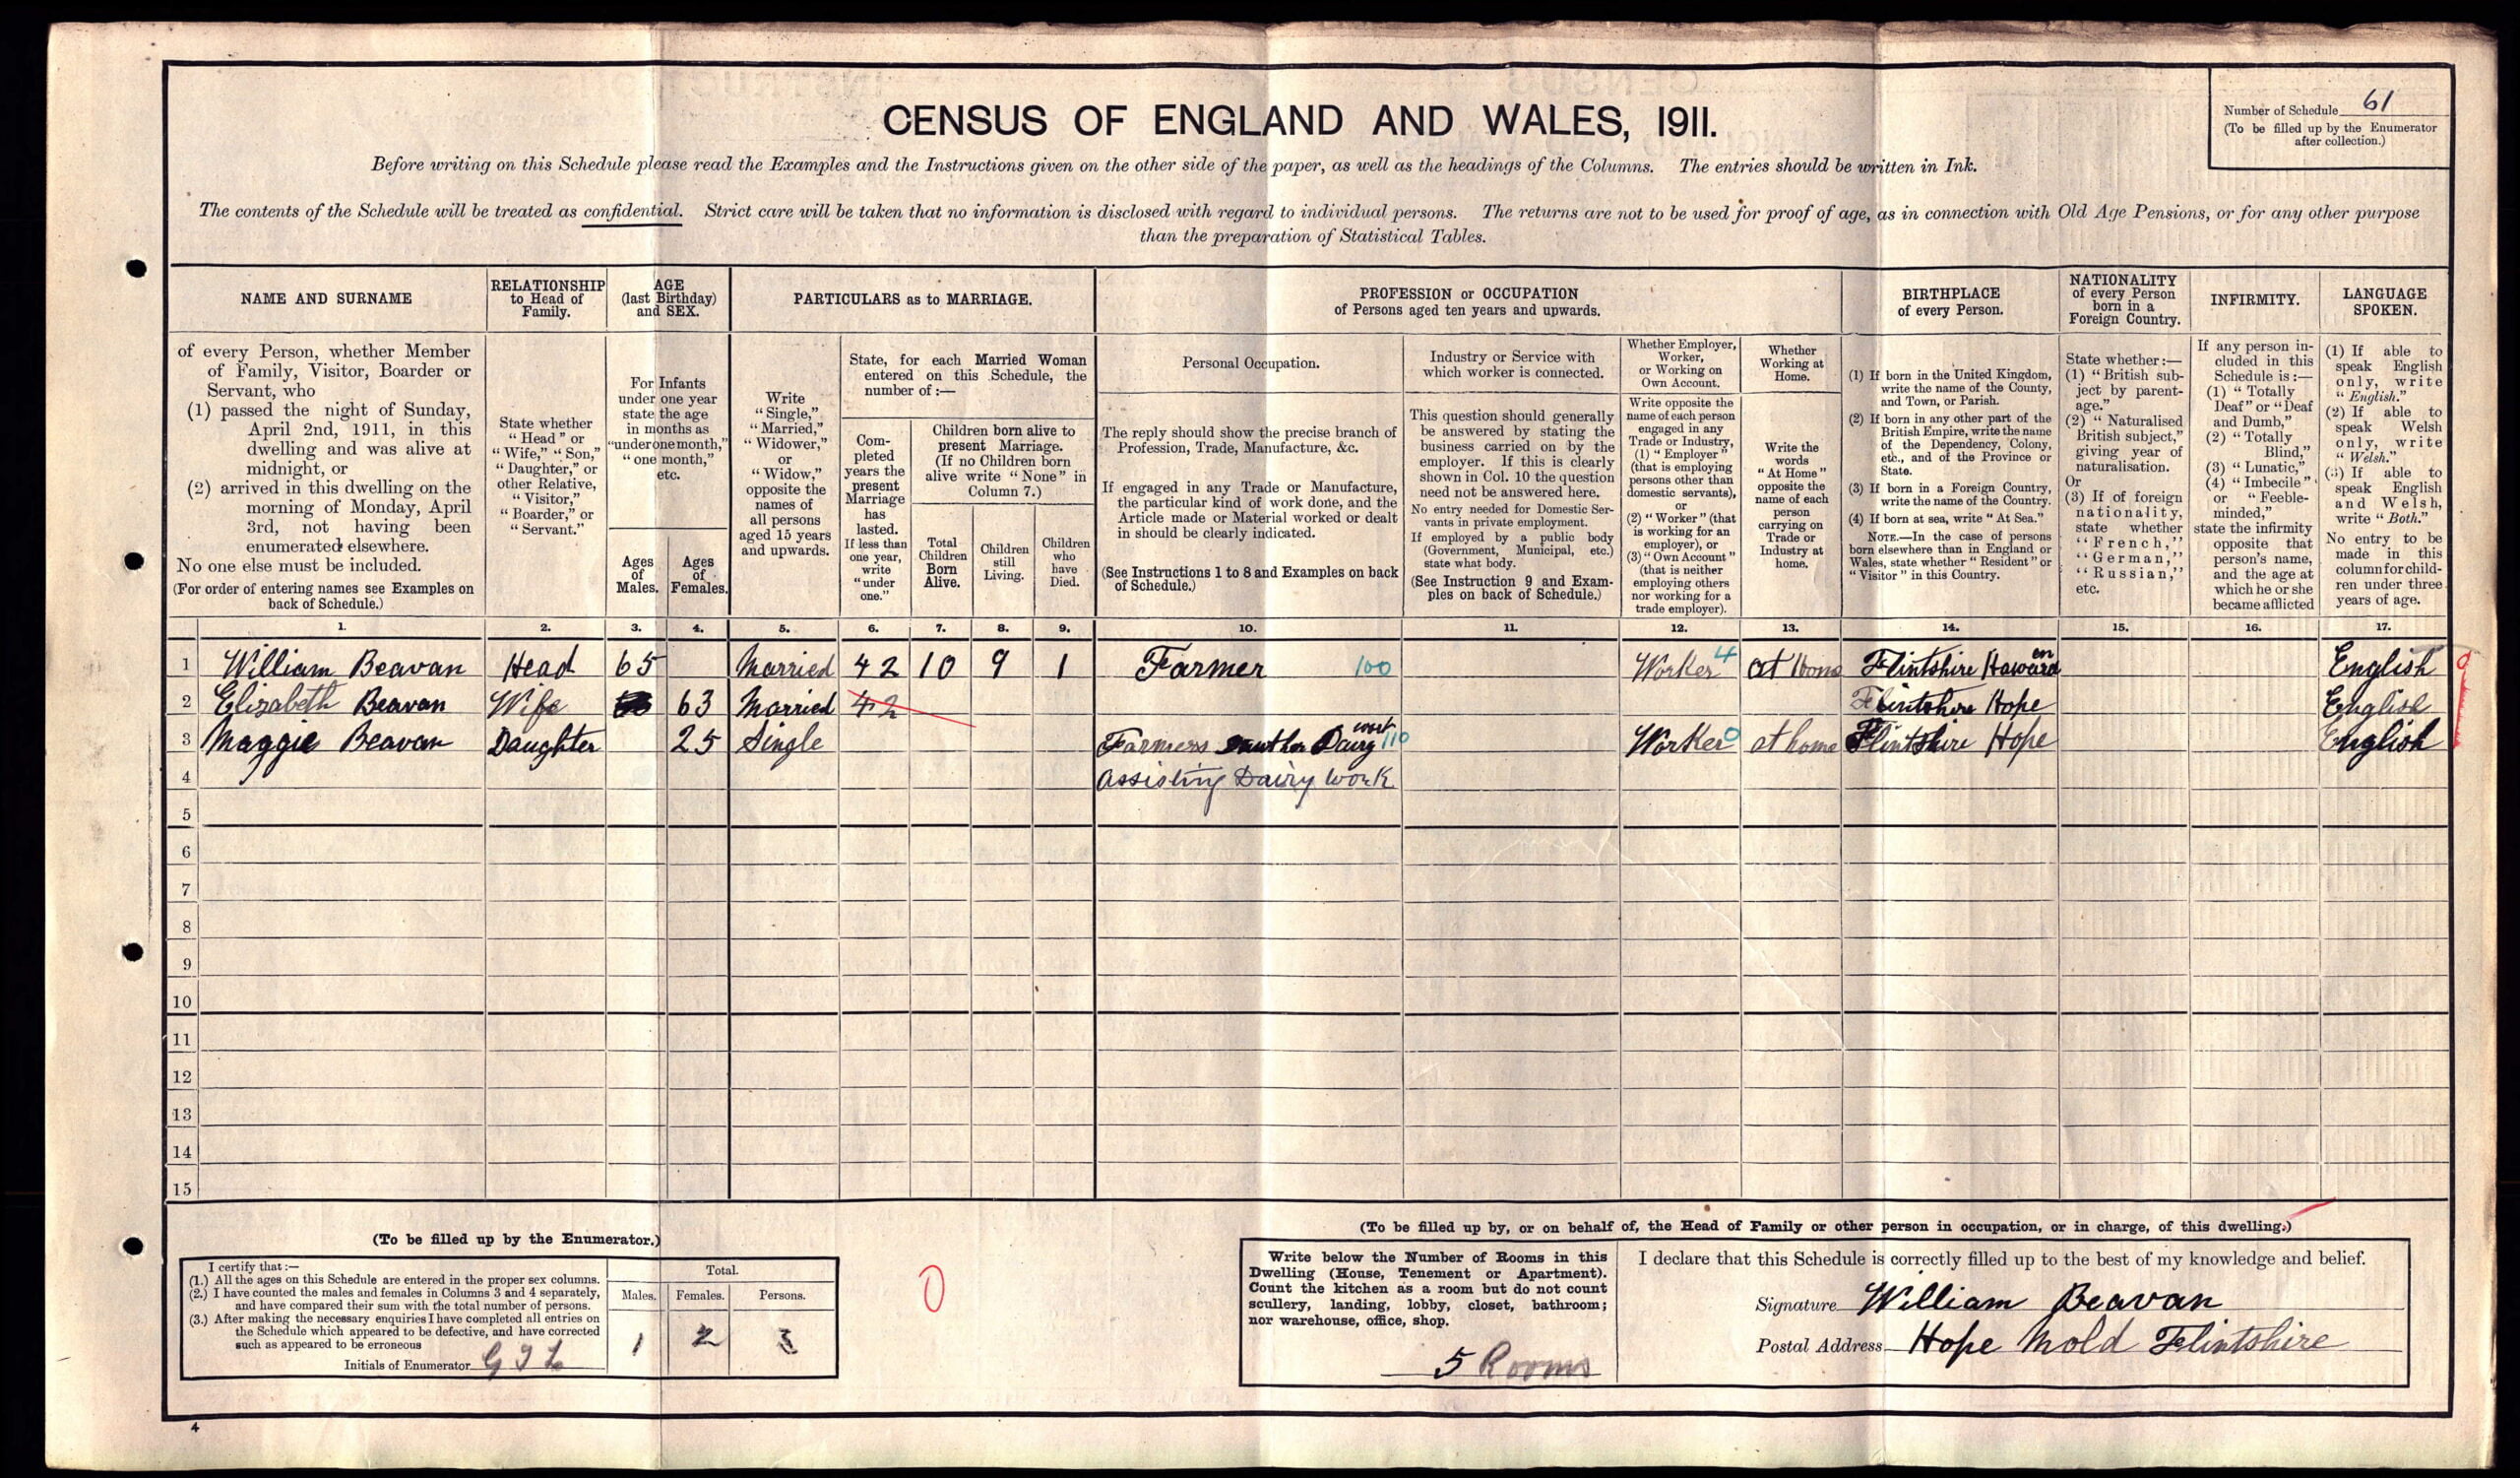 CENSUS OF ENGLAND AND WALES, 1911.
Number of Schedule 61
(To be filled up by the Enumerator
after collection.)
Before writing on this Schedule please read the Examples and the Instructions given on the other side of the paper, as well as the headings of the Columns. The entries should be written in Ink.
The contents of the Schedule will be treated as confidential. Strict care will be taken that no information is disclosed with regard to individual persons. The returns are not to be used for proof of age, as in connection with Old Age Pensions, or for any other purpose
than the preparation of Statistical Tables.
NAME AND SURNAME
of every Person, whether Member
of Family, Visitor, Boarder or
Servant, who
(1) passed the night of Sunday,
April 2nd, 1911, in this
dwelling and was alive at
midnight, or
(2) arrived in this dwelling on the
morning of Monday, April
3rd, not having been
enumerated elsewhere.
No one else must be included.
(For order of entering names see Examples on
back of Schedule.)
RELATIONSHIP
to Head of
Family.
State whether
"Head" or
"Wife," "Son,"
"Daughter," or
other Relative,
"Visitor,"
"Boarder," or
"Servant."
AGE
(last Birthday)
and SEX.
For Infants
under one year
state the age
in months as
"under one month,"
"one month,"
etc.
Ages
of
Males.
Ages
of
Females.
PARTICULARS as to MARRIAGE.
Write
"Single,"
"Married,"
"Widower,"
or
"Widow,"
opposite the
names of
all persons
aged 15 years
and upwards.
State, for each Married Woman
entered on this Schedule, the
number of :—
Com-
pleted
years the
present
Marriage
has
lasted.
If less than
one year,
write
"under
one."
Children born alive to
present Marriage.
(If no Children born
alive write "None" in
Column 7.)
Total
Children
Born
Alive.
Children
still
Living.
Children
who
have
Died.
PROFESSION or OCCUPATION
of Persons aged ten years and upwards.
Personal Occupation.
The reply should show the precise branch of
Profession, Trade, Manufacture, &c.
If engaged in any Trade or Manufacture,
the particular kind of work done, and the
Article made or Material worked or dealt
in should be clearly indicated.
(See Instructions 1 to 8 and Examples on back
of Schedule.)
Industry or Service with
which worker is connected.
This question should generally
be answered by stating the
business carried on by the
employer. If this is clearly
shown in Col. 10 the question
need not be answered here.
No entry needed for Domestic Ser-
vants in private employment.
If employed by a public body
(Government, Municipal, etc.)
state what body.
(See Instruction 9 and Exam-
ples on back of Schedule.)
Whether Employer,
Worker,
or Working on
Own Account.
Write opposite the
name of each person
engaged in any
Trade or Industry,
(1) "Employer"
(that is employing
persons other than
domestic servants),
or
(2) "Worker" (that
is working for an
employer), or
(3) "Own Account"
(that is neither
employing others
nor working for a
trade employer).
Whether
Working at
Home.
Write the
words
"At Home"
opposite the
name of each
person
carrying on
Trade or
Industry at
home.
BIRTHPLACE
of every Person.
(1) If born in the United Kingdom,
write the name of the County,
and Town, or Parish.
(2) If born in any other part of the
British Empire, write the name
of the Dependency, Colony,
etc., and of the Province or
State.
(3) If born in a Foreign Country,
write the name of the Country.
(4) If born at sea, write "At Sea."
NOTE.—In the case of persons
born elsewhere than in England or
Wales, state whether "Resident" or
"Visitor" in this Country.
NATIONALITY
of every Person
born in a
Foreign Country.
State whether :—
(1) "British sub-
ject by parent-
age."
(2) "Naturalised
British subject,"
giving year of
naturalisation.
Or
(3) If of foreign
nationality,
state whether
"French,"
"German,"
"Russian,"
etc.
INFIRMITY.
If any person in-
cluded in this
Schedule is :—
(1) "Totally
Deaf" or "Deaf
and Dumb,"
(2) "Totally
Blind,"
(3) "Lunatic,"
(4) "Imbecile"
or "Feeble-
minded,"
state the infirmity
opposite that
person's name,
and the age at
which he or she
became afflicted
LANGUAGE
SPOKEN.
(1) If able to
speak English
only, write
"English."
(2) If able to
speak Welsh
only, write
"Welsh."
(3) If able to
speak English
and Welsh,
write "Both."
No entry to be
made in this
column for child-
ren under three
years of age.
1. 2. 3. 4. 5. 6. 7. 8. 9. 10. 11. 12. 13. 14. 15. 16. 17.
1 William Beavan Head 65 Married 42 10 9 1 Farmer 100 Worker 4 at Home Flintshire Hawarden English 0
2 Elizabeth Beavan Wife 63 Married 42 Flintshire Hope English
3 Maggie Beavan Daughter 25 Single Farmers Dairy work 110 Worker 0 at home Flintshire Hope English
4 Assisting Dairy Work
5
6
7
8
9
10
11
12
13
14
15
(To be filled up by the Enumerator.)
I certify that :—
(1.) All the ages on this Schedule are entered in the proper sex columns.
(2.) I have counted the males and females in Columns 3 and 4 separately,
and have compared their sum with the total number of persons.
(3.) After making the necessary enquiries I have completed all entries on
the Schedule which appeared to be defective, and have corrected
such as appeared to be erroneous
Initials of Enumerator
Total.
Males. Females. Persons.
1 2 3
0
(To be filled up by, or on behalf of, the Head of Family or other person in occupation, or in charge, of this dwelling.)
Write below the Number of Rooms in this
Dwelling (House, Tenement or Apartment).
Count the kitchen as a room but do not count
scullery, landing, lobby, closet, bathroom;
nor warehouse, office, shop.
5 Rooms
I declare that this Schedule is correctly filled up to the best of my knowledge and belief.
Signature William Beavan
Postal Address Hope Mold Flintshire
4